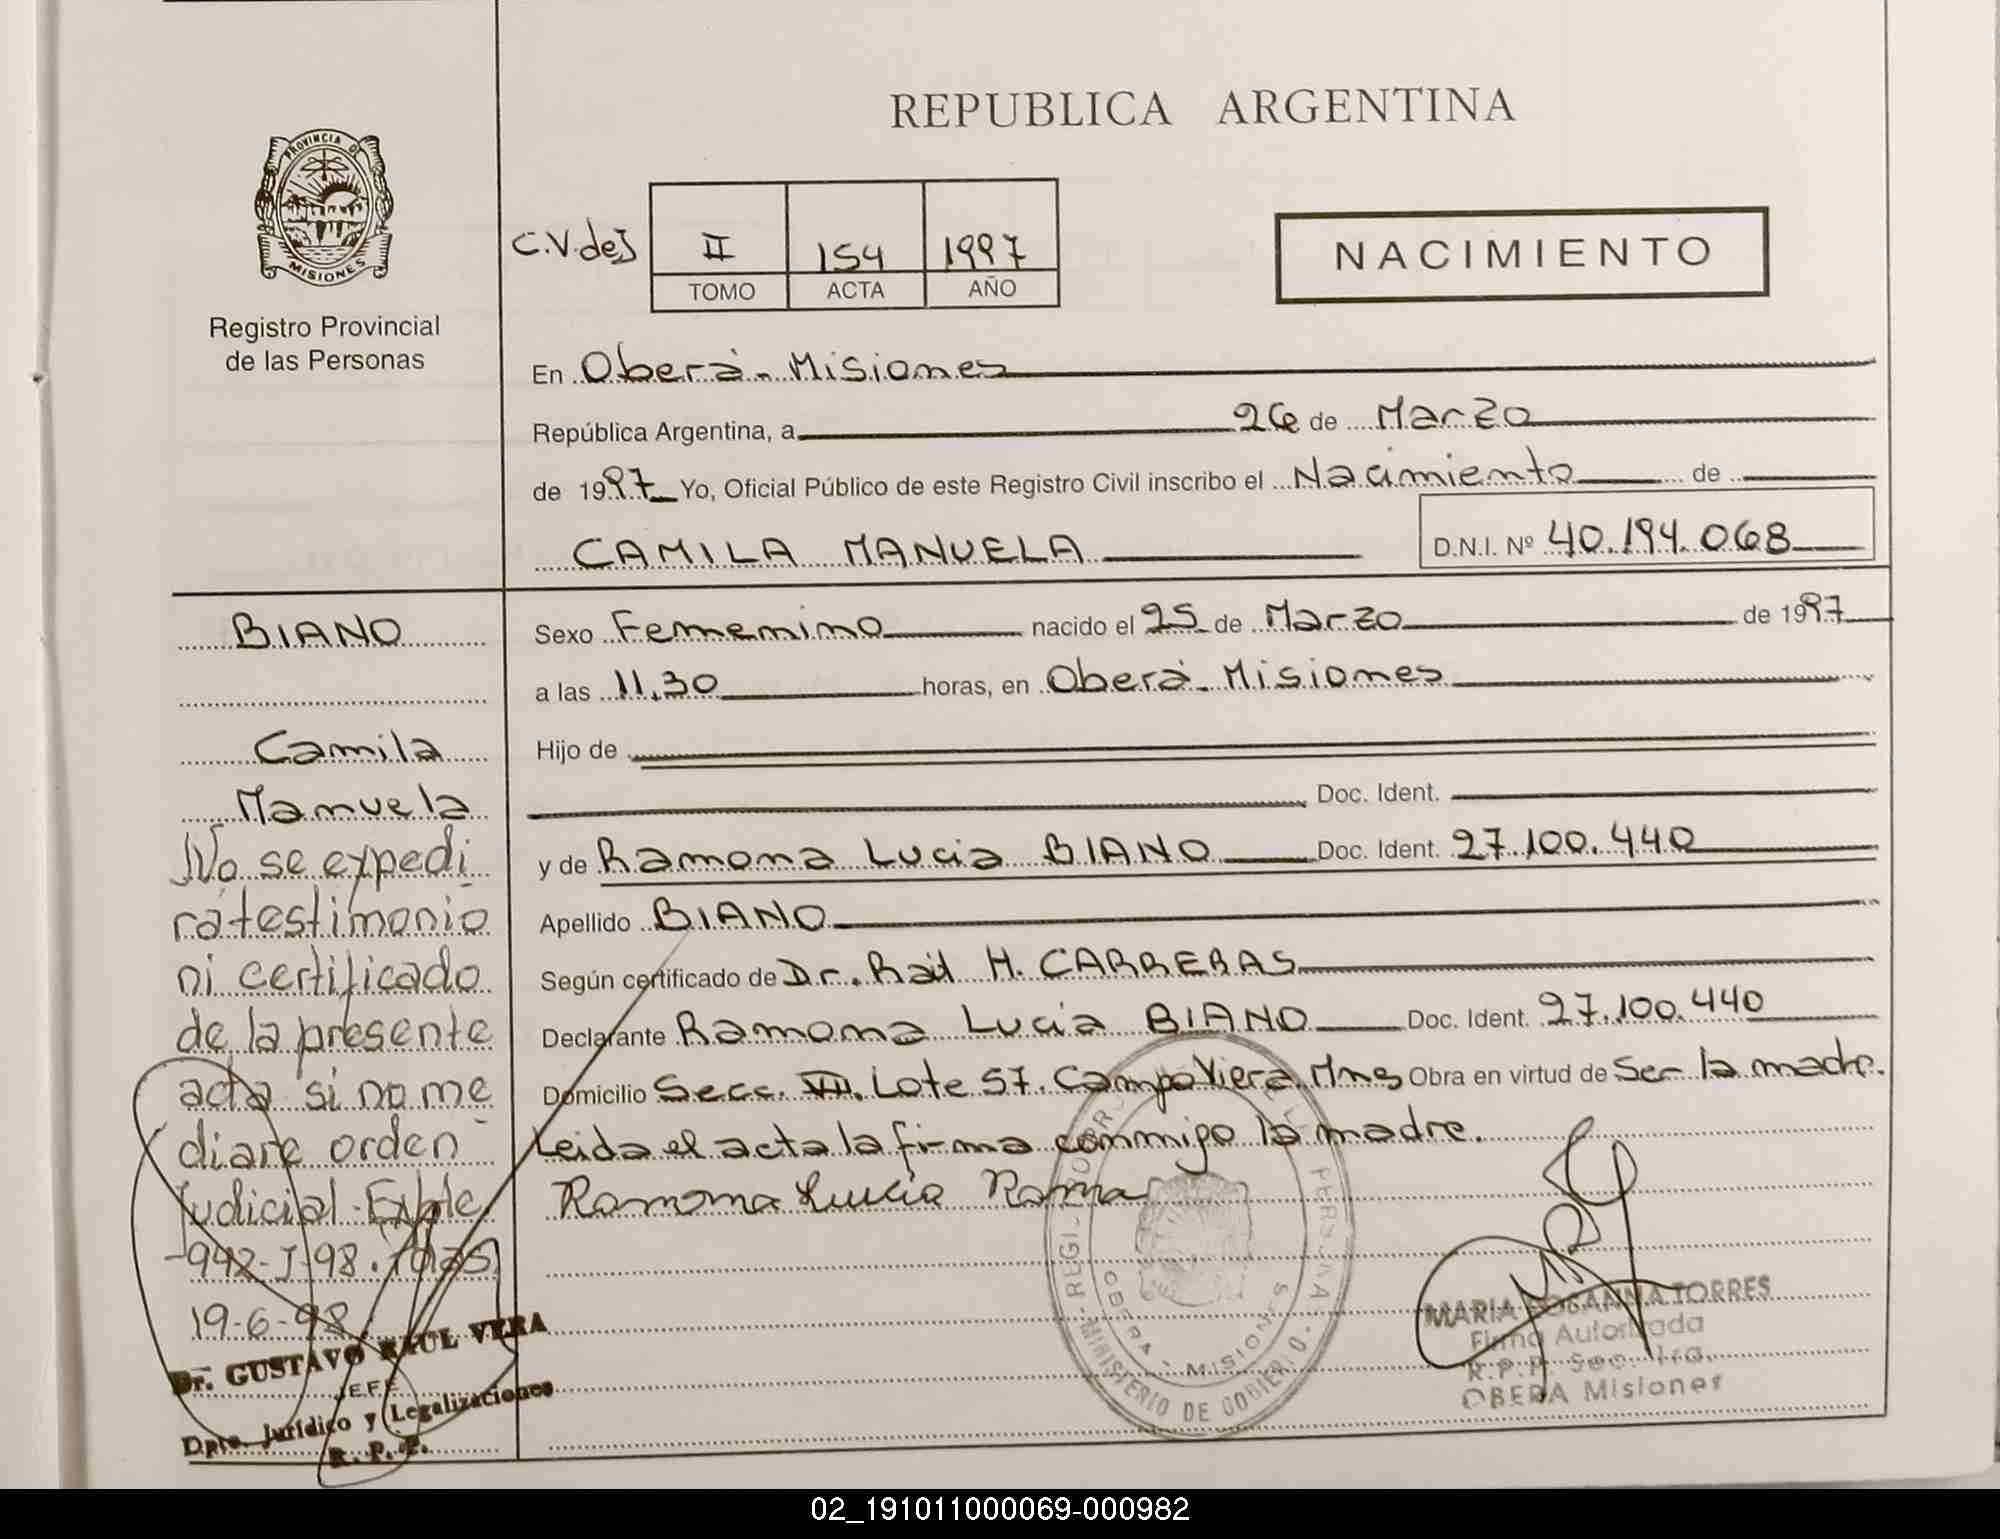 REPUBLICA ARGENTINA
PROVINCIA DE
MISIONES
Registro Provincial
de las Personas
C.V.deJ
II 154 1997
TOMO ACTA AÑO
NACIMIENTO
En Oberá - Misiones
República Argentina, a 26 de Marzo
de 1997 Yo, Oficial Público de este Registro Civil inscribo el Nacimiento de
CAMILA MANUELA D.N.I. Nº 40.194.068
BIANO
Camila
Manuela
No se expedi
rá testimonio
ni certificado
de la presente
acta si no me
diare orden
judicial - Expte.
-942-J-98.
19-6-98
Dr. GUSTAVO RAUL VERA
JEFE
Dpto. Jurídico y Legalizaciones
R. P. P.
Sexo Femenino nacido el 25 de Marzo de 1997
a las 11.30 horas, en Oberá - Misiones
Hijo de
Doc. Ident.
y de Ramona Lucia BIANO Doc. Ident. 27.100.440
Apellido BIANO
Según certificado de Dr. Raúl H. CARRERAS
Declarante Ramona Lucia BIANO Doc. Ident. 27.100.440
Domicilio Secc. VII. Lote 57. Campo Viera. Mnes Obra en virtud de Ser la madre.
Leida el acta la firma conmigo la madre.
Ramona Lucia
MINISTERIO DE GOBIERNO
OBERA - MISIONES
MARIA ROSANNA TORRES
Firma Autorizada
R.P.P. Sec. 1ra.
OBERA Misiones
02_191011000069-000982